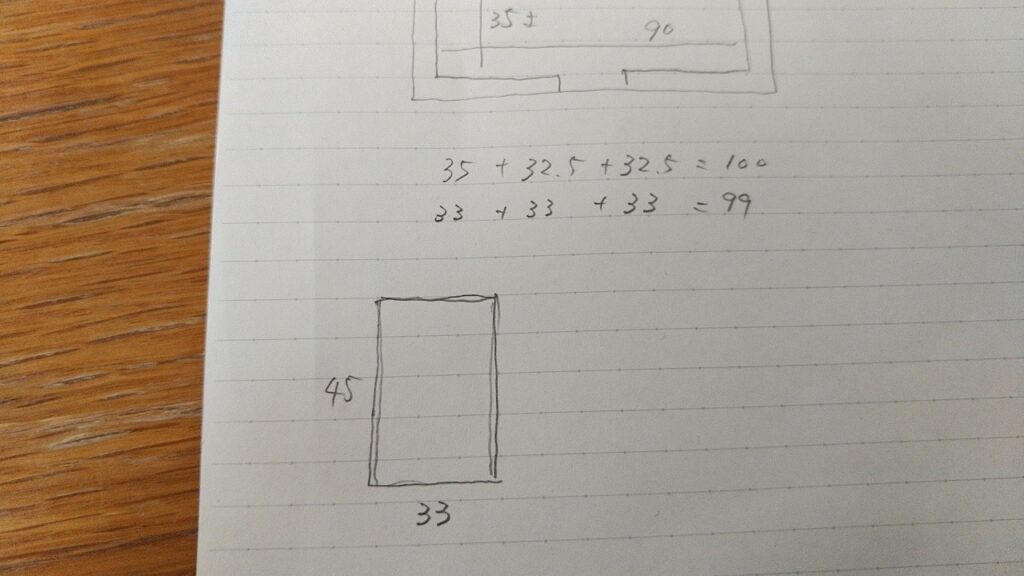 35±
90
35 + 32.5 + 32.5 = 100
33 + 33 + 33 = 99
45
33